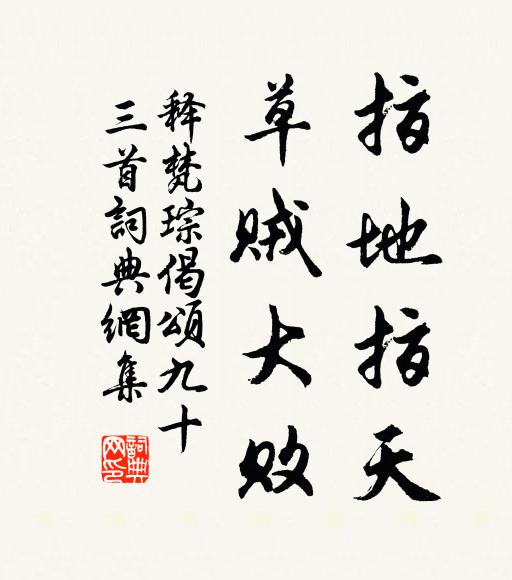 指地指天
草贼大败
释梵琮偈頌九十
三首詞典網集
詞典
网印